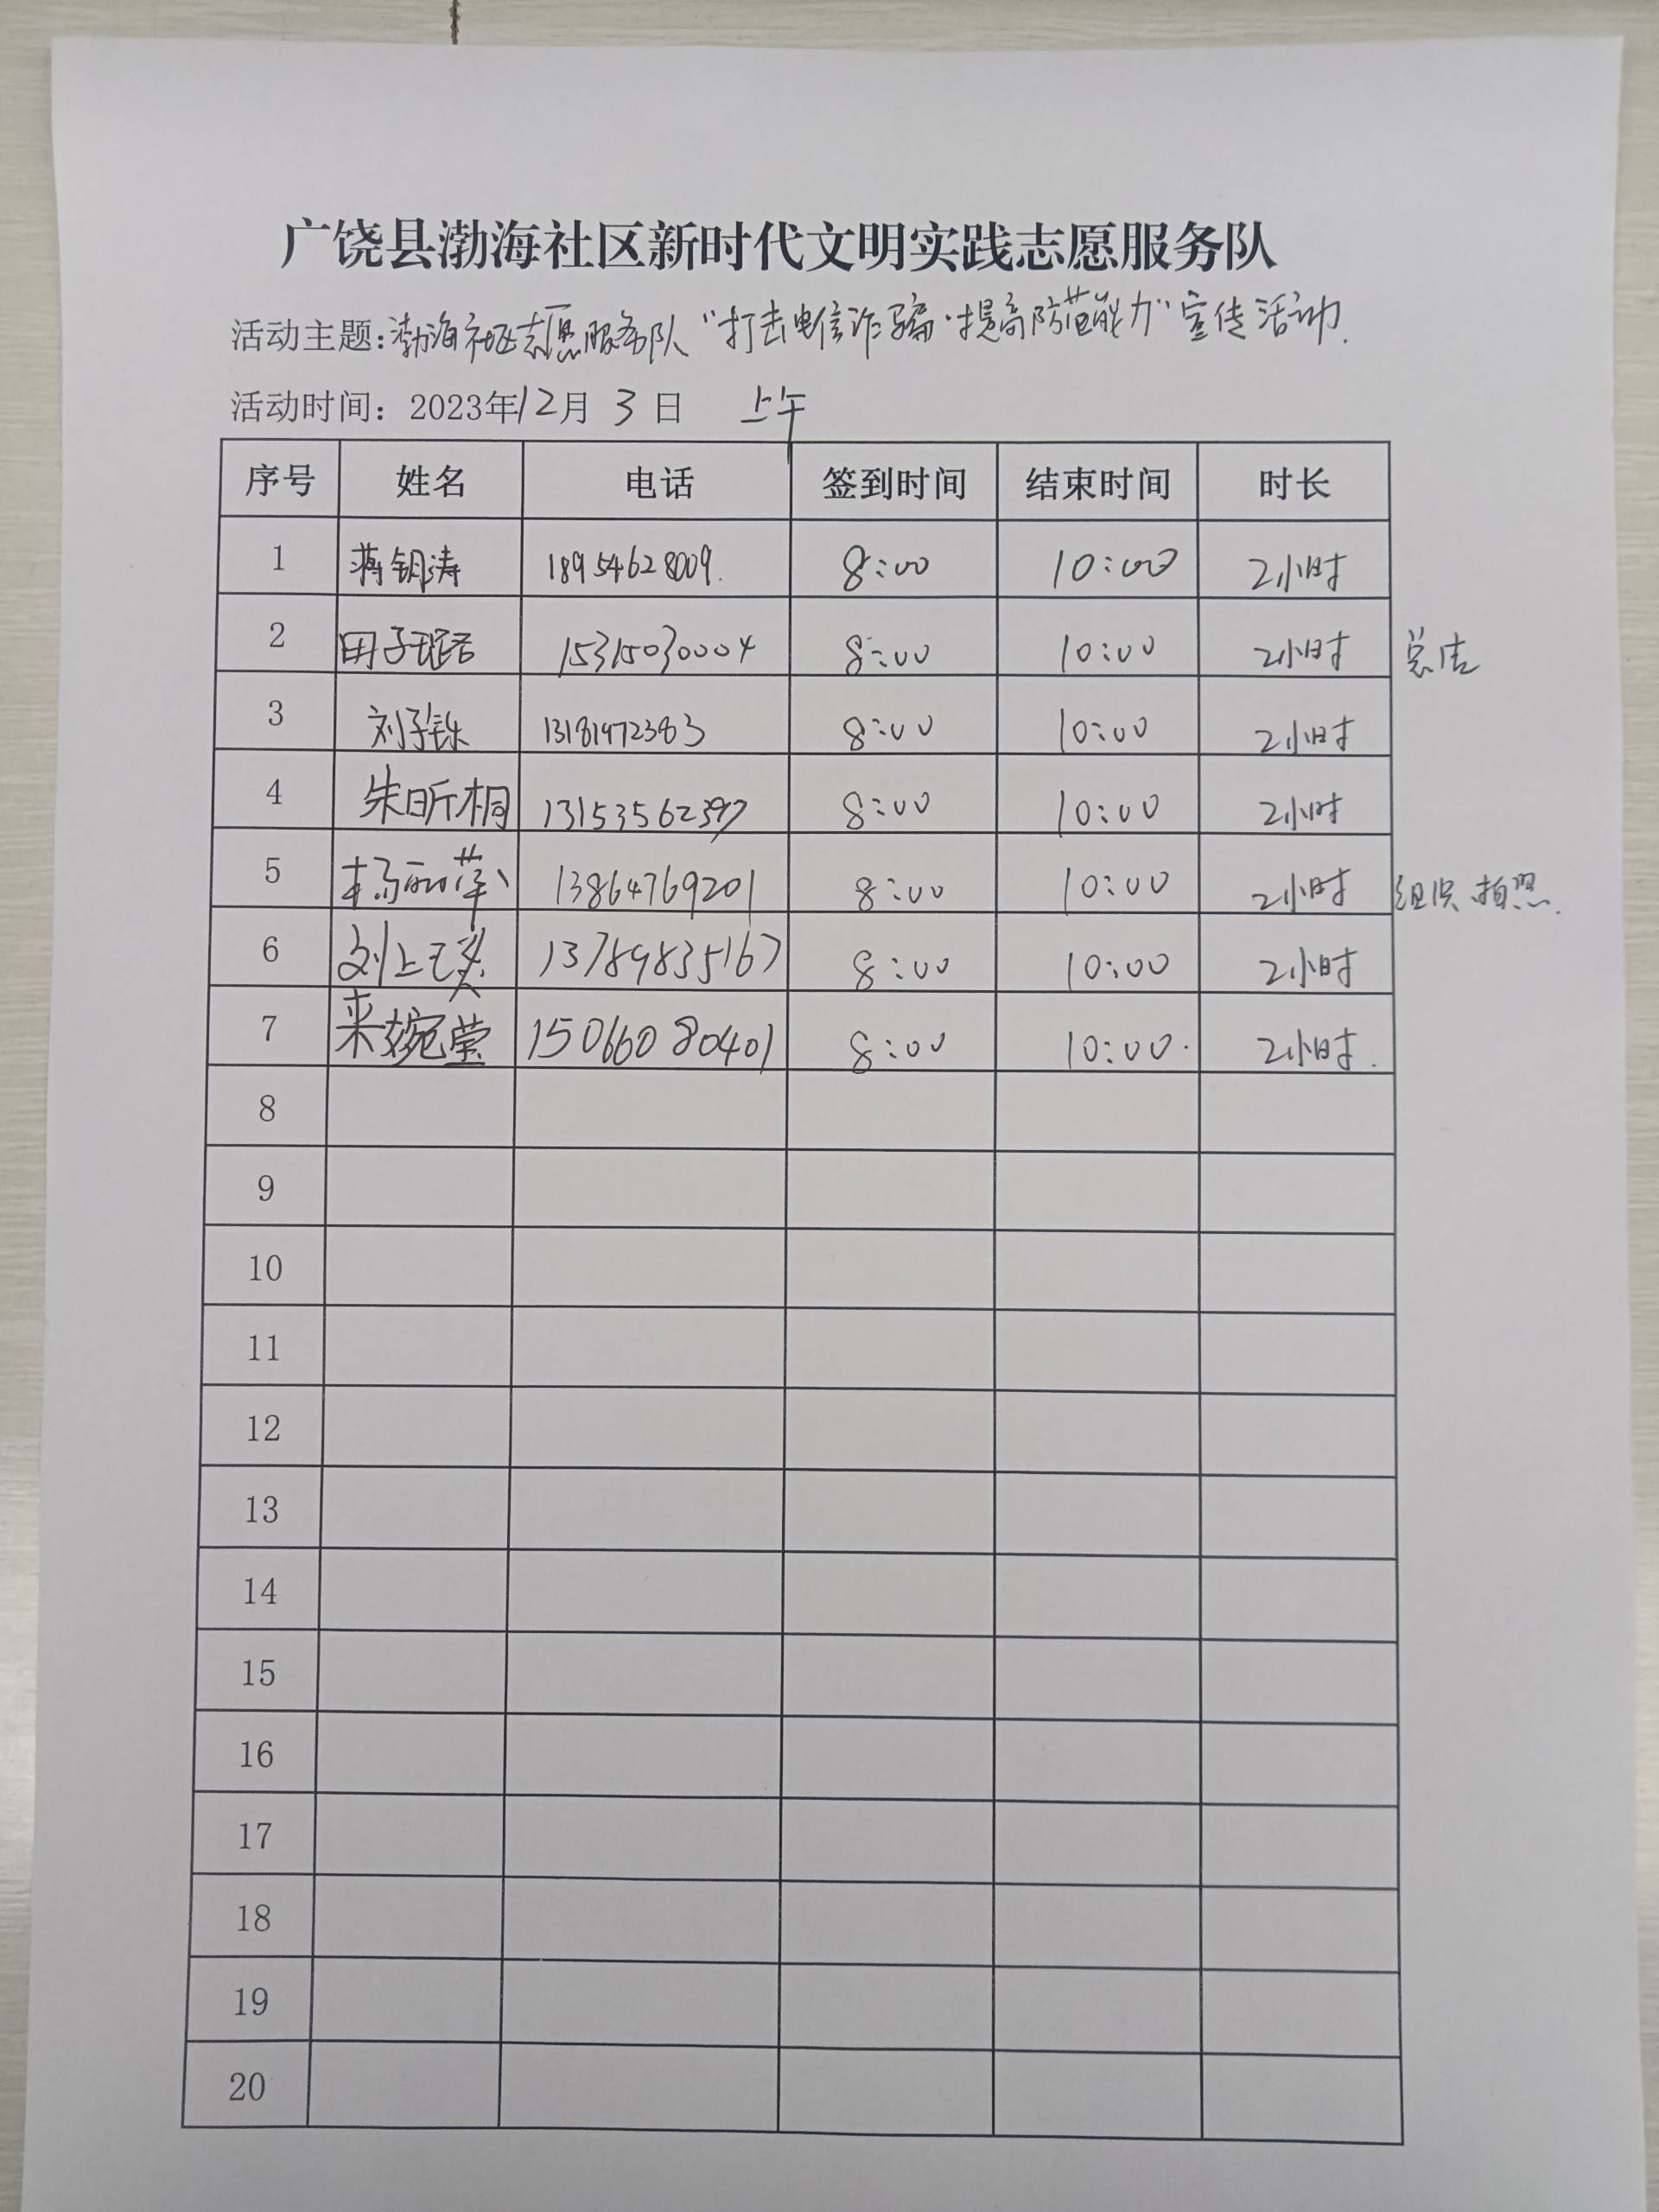 广饶县渤海社区新时代文明实践志愿服务队
活动主题:渤海社区志愿服务队“打击电信诈骗·提高防范能力”宣传活动.
活动时间: 2023年12月 3 日 上午
序号 姓名 电话 签到时间 结束时间 时长
1 蒋钥涛 18954628009. 8:00 10:00 2小时
2 田子珺 15315030004 8:00 10:00 2小时 总结
3 刘子铄 13181972383 8:00 10:00 2小时
4 朱昕桐 13153562397 8:00 10:00 2小时
5 杨丽萍 13864769201 8:00 10:00 2小时 组织.拍照.
6 刘上瑛 13789835167 8:00 10:00 2小时
7 来婉莹 15066080401 8:00 10:00. 2小时.
8
9
10
11
12
13
14
15
16
17
18
19
20